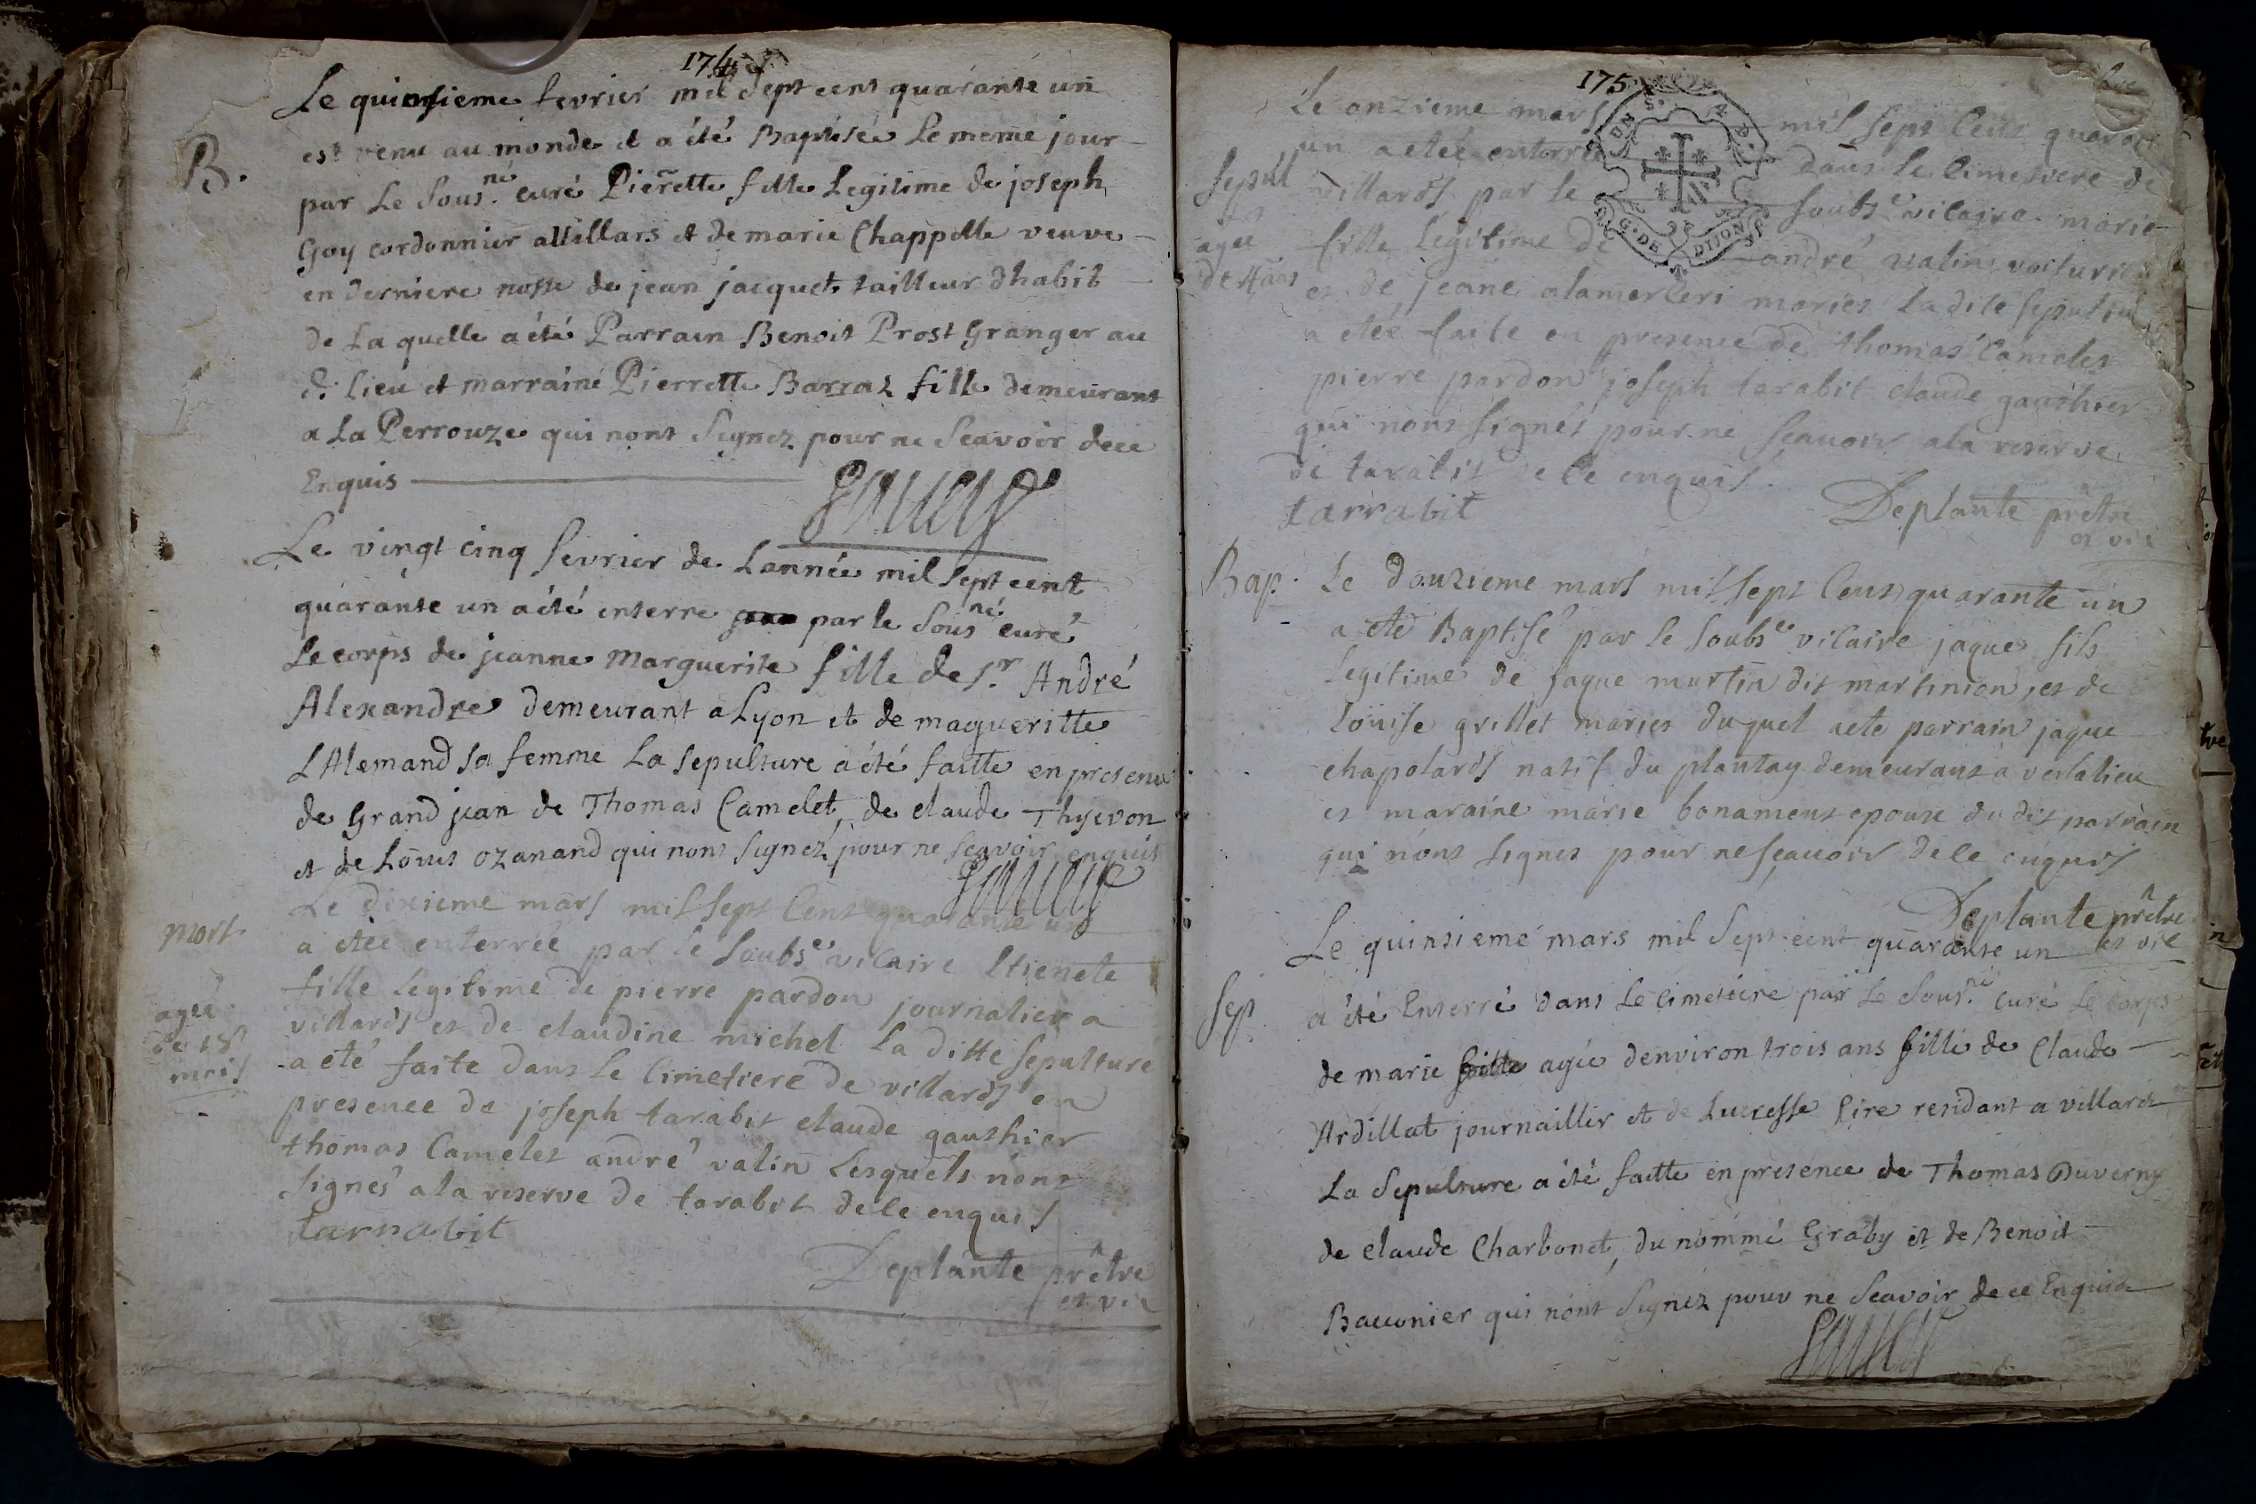 174
Le quinsieme fevrier mil sept cent quarante un
B.
est venu au monde et a été Baptisée Le meme jour
par Le Sous.né curé Pierrette fille Legitime de joseph
Goy cordonnier a Villars et de marie Chappelle veuve
en derniere nosse de jean jacquet tailleur dhabit
de La quelle a été Parrain Benoit Prost Granger au
d. lieu et marraine Pierrette Barraz fille demeurant
a La Perrouze qui nont Signez pour ne Scavoir dece
Enquis
Le vingt cinq fevrier de Lannée mil sept cent
quarante un a été enterre par le Sousné curé
Le corps de jeanne Marguerite fille de Sr. André
Alexandre demeurant a Lyon et de magueritte
LAlemand sa femme La sepulture a été faitte en presence
de Grand jean de Thomas Camelet, de claude Thyevon
et de Louis ozanand qui nont Signez pour ne Scavoir enquis
mort
Le dixieme mars mil sept Cent quarante un
a etee enterrée par le soubse. vicaire Etienete
agee
de 18
mois
fille legitime de pierre pardon journalier a
villards et de claudine michel La ditte sepulture
a eté faite dans le Cimetiere de villards en
presence de joseph tarabit claude gauthier
thomas Camelet andré valin Lesquels nont
signés a la reserve de tarabit de ce enquis
tarrabit
Deplante prêtre
et vic
175
Le onzieme mars mil sept Cent quarante
un a etée enterrée dans le Cimetiere de
Sepul
villards par le soubse vicaire marie
agee
de 4 ans
fille legitime de andré valin voiturier
et de jeane alamerleri maries La dite sepulture
a etée faite en presence de thomas Camelet
pierre pardon joseph tarabit claude gauthier
qui nont signés pour ne scauoir a la reserve
de tarabit de ce enquis
tarrabit
Deplante prêtre
et vic
Bap.
Le douzieme mars mil sept Cent quarante un
a eté Baptisé par le soubse. vicaire jaque fils
legitime de jaque martin dit martinion, et de
Louise grillet maries duquel a ete parrain jaque
chapolards natif du plantay demeurant a verlalieu
et maraine marie bonament epouse du dit parrain
qui nont signes pour ne scauoir de ce enquis
Deplante prêtre
et vic
Le quinsieme mars mil Sept cent quarante un
Sep.
a été Enterré dans Le Cimetiere par Le Sous.né Curé Le Corps
de marie agée denviron trois ans fille de Claude
Ardillat journaillir et de Lucresse Pire residant a villars
La Sepulture a été faitte en presence de Thomas Duverny
de claude Charbonet, du nommé Graby et de Benoit
Bauonier qui nont Signez pour ne Scavoir de ce Enquis